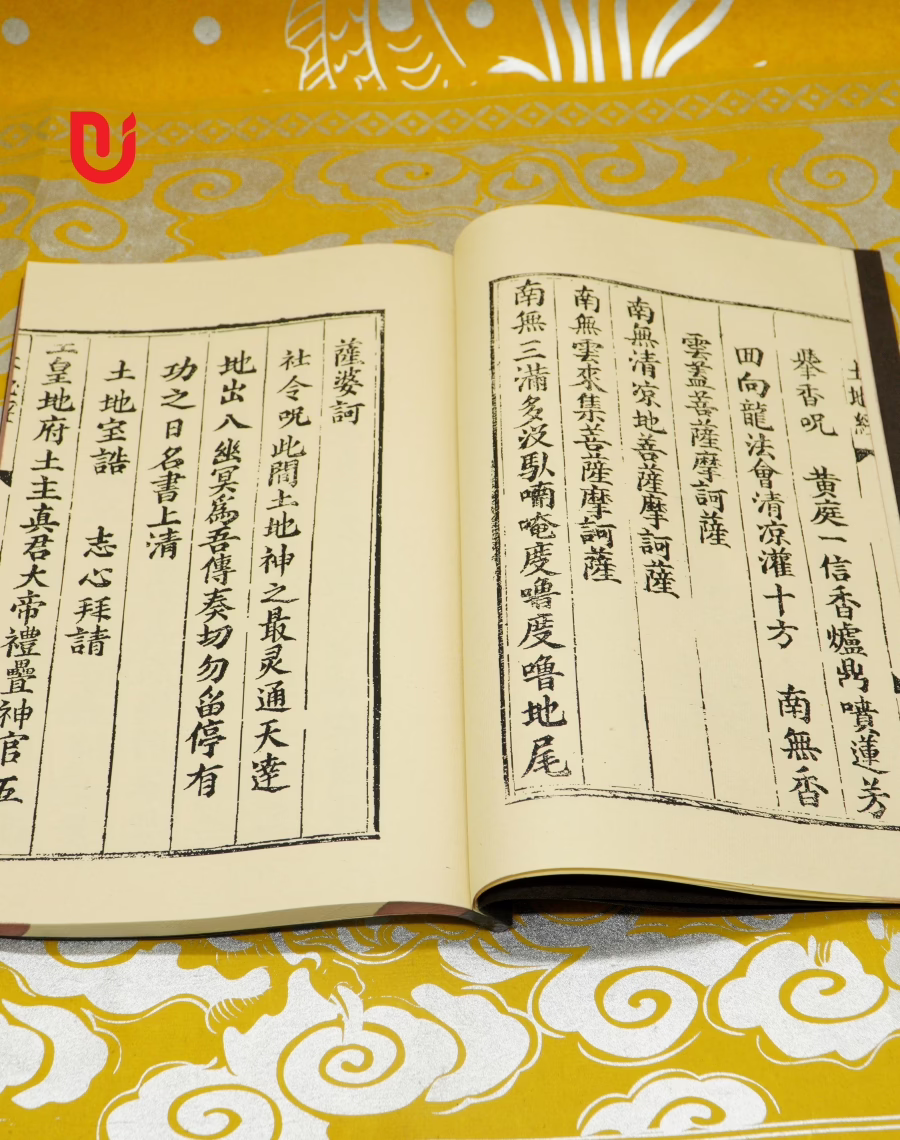 土地經
舉香呪 黄庭一信香爐鼎噴蓮芳
回向龍法會清凉灌十方 南無香
雲蓋菩薩摩訶薩
南無清凉地菩薩摩訶薩
南無雲來集菩薩摩訶薩
南無三滿多没馱喃唵度嚕度嚕地尾
薩婆訶
社令呪此間土地神之最灵通天達
地出八幽冥爲吾傳奏切勿留停有
功之日名書上清
土地室誥 志心拜請
皇地府土主真君大帝禮疊神官五